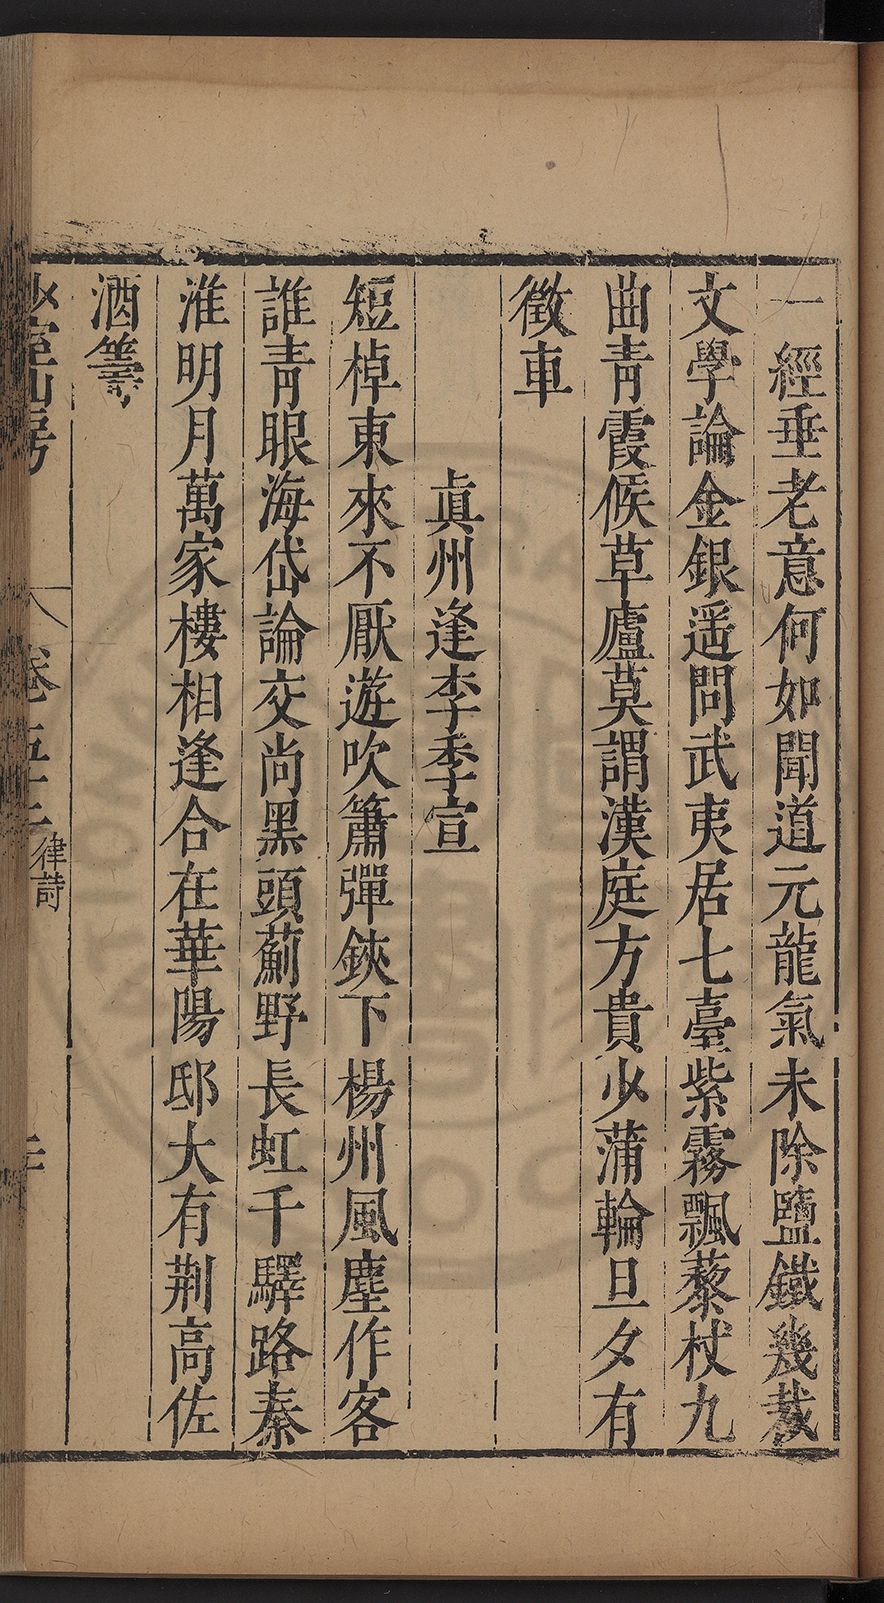 一經垂老意何如聞道元龍氣未除鹽鐵幾裁
文學論金銀遥問武夷居七臺紫霧飄藜杖九
曲青霞候草廬莫謂漢庭方貴少蒲輪旦夕有
徵車
眞州逢李季宣
短棹東來不厭遊吹簫彈鋏下楊州風塵作客
誰青眼海岱論交尚黑頭薊野長虹千驛路秦
淮明月萬家樓相逢合在華陽邸大有荆高佐
酒籌
少室山房
卷五十
律詩